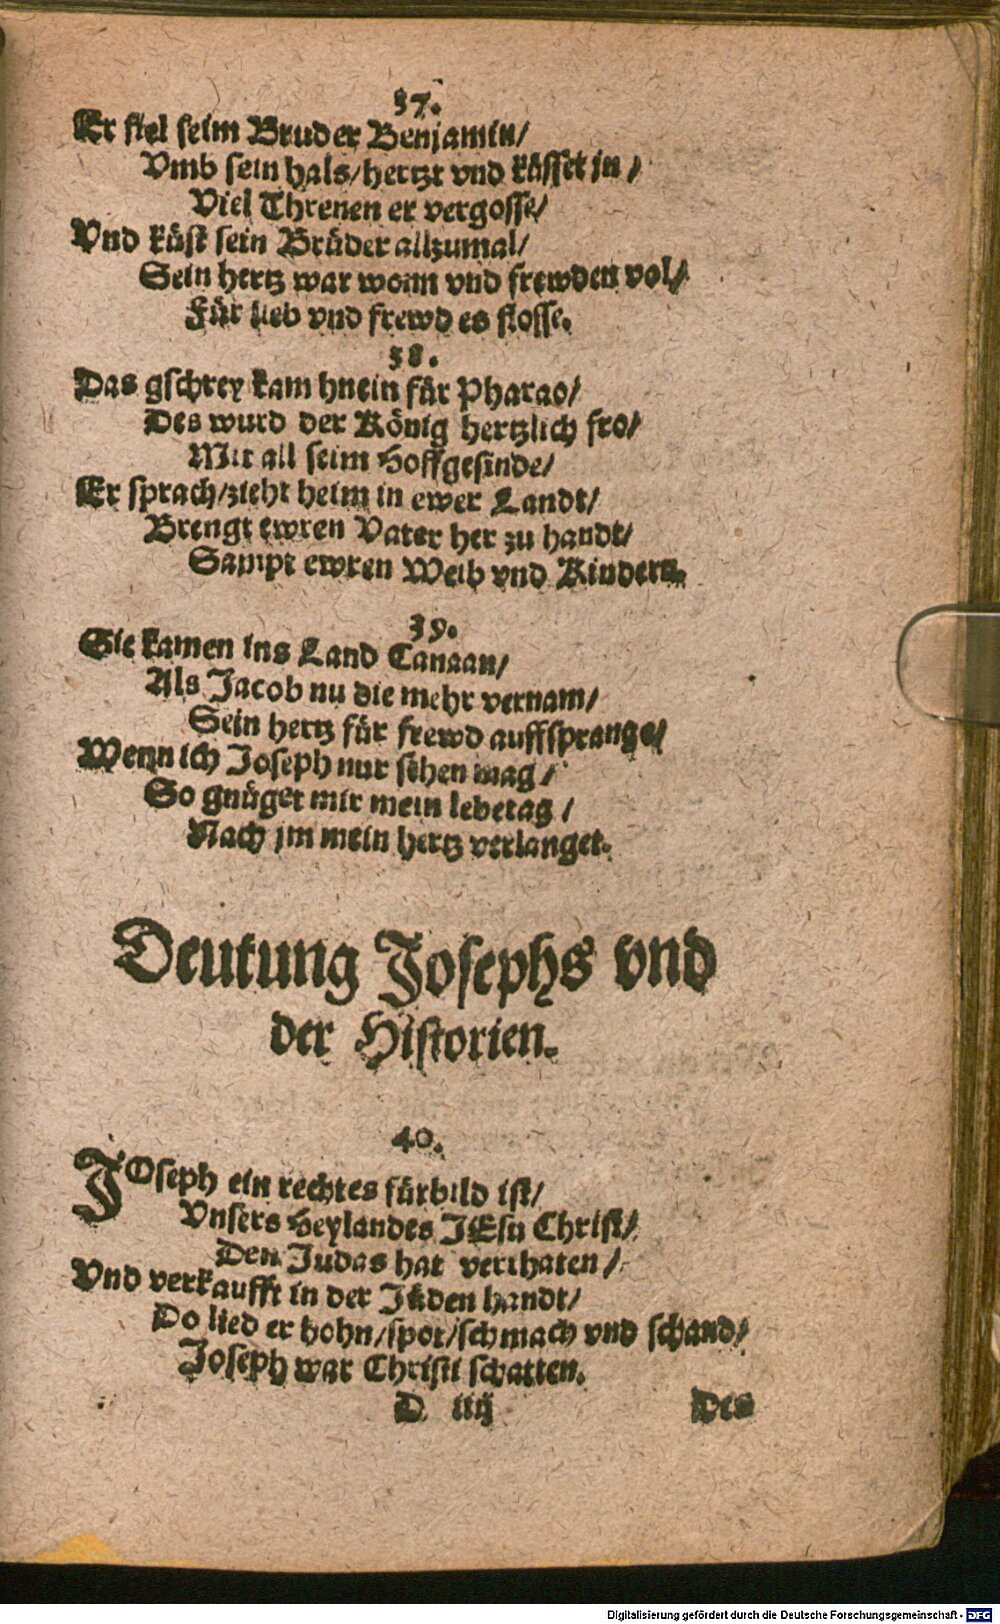 37.
Er fiel seim Bruder Benjamin/
Vmb sein hals/hertzt vnd küsset jn/
Viel Threnen er vergosse/
Vnd küst sein Brüder allzumal/
Sein hertz war wonn vnd frewden vol/
Für lieb vnd frewd es flosse.
38.
Das gschrey kam hnein für Pharao/
Des wurd der König hertzlich fro/
Mit all seim Hoffgesinde/
Er sprach/zieht heim in ewer Landt/
Brengt ewren Vater her zu handt/
Sampt ewren Weib vnd Kindern.
39.
Sie kamen ins Land Canaan/
Als Jacob nu die mehr vernam/
Sein hertz für frewd auffsprange/
Wenn ich Joseph nur sehen mag/
So gnüget mir mein lebetag/
Nach jm mein hertz verlanget.
Deutung Josephs vnd
der Historien.
40.
JOseph ein rechtes fürbild ist/
Vnsers Heylandes JEsu Christ/
Den Judas hat verrhaten/
Vnd verkaufft in der Jüden handt/
Do lied er hohn/spot/schmach vnd schand/
Joseph war Christi schatten.
D iiij Des
Digitalisierung gefördert durch die Deutsche Forschungsgemeinschaft - DFG